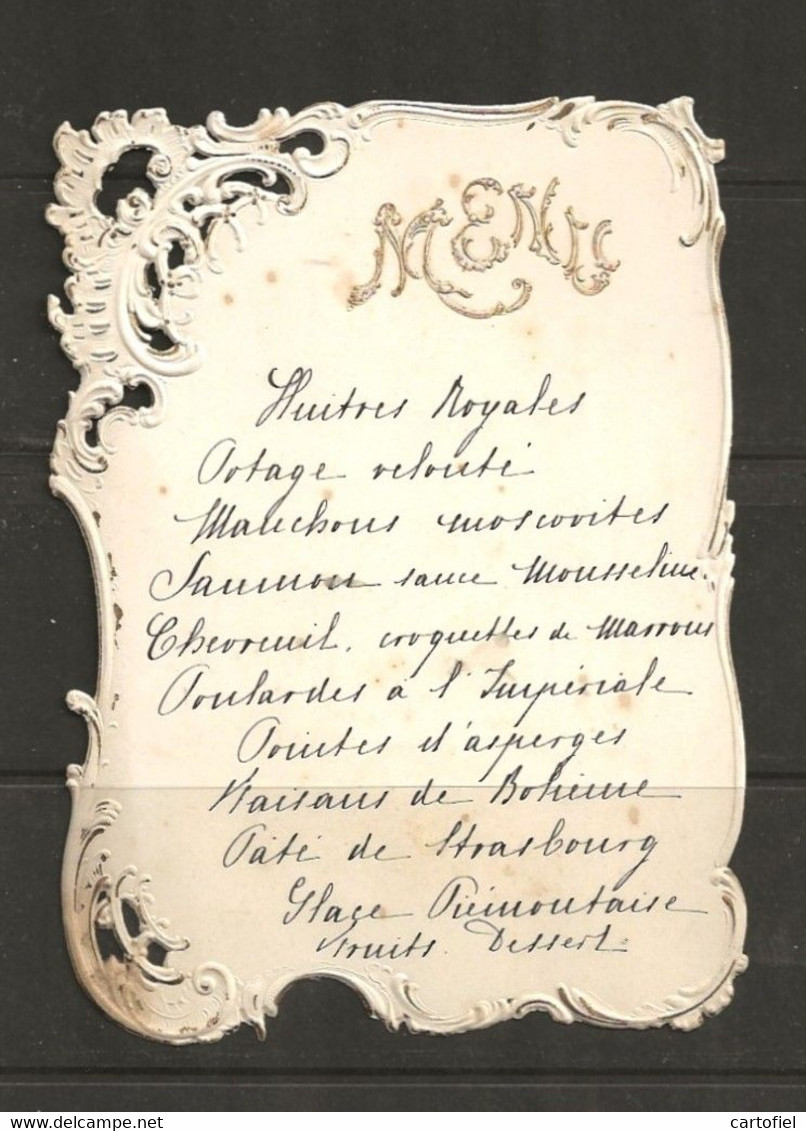 MENU
Huitres Royales
Potage velouté
Manchons moscovites
Saumon sauce Mousseline.
Chevreuil. croquettes de Marrons
Poulardes à l'Impériale
Pointes d'asperges
Faisans de Bohème
Pâté de Strasbourg
Glace Piémontaise
Fruits. Dessert
delcampe.net
cartofiel